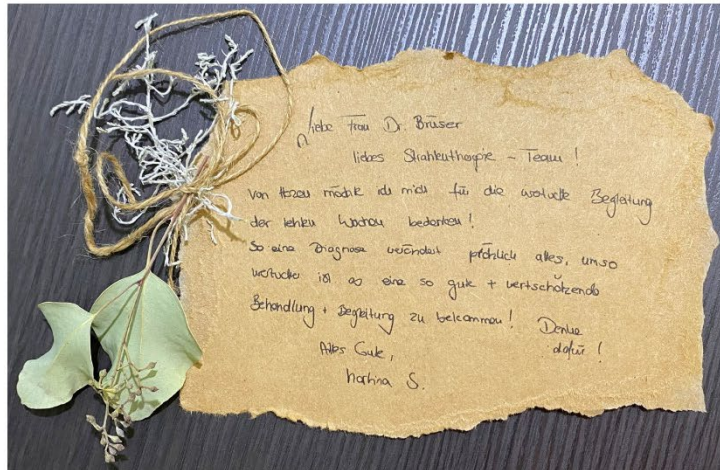 Liebe Frau Dr. Brüser
liebes Strahlentherapie - Team !
Von Herzen möchte ich mich für die wertvolle Begleitung
der letzten Wochen bedanken !
So eine Diagnose verändert plötzlich alles, umso
wertvoller ist es eine so gute + wertschätzende
Behandlung + Begleitung zu bekommen ! Danke
dafür !
Alles Gute,
Martina S.